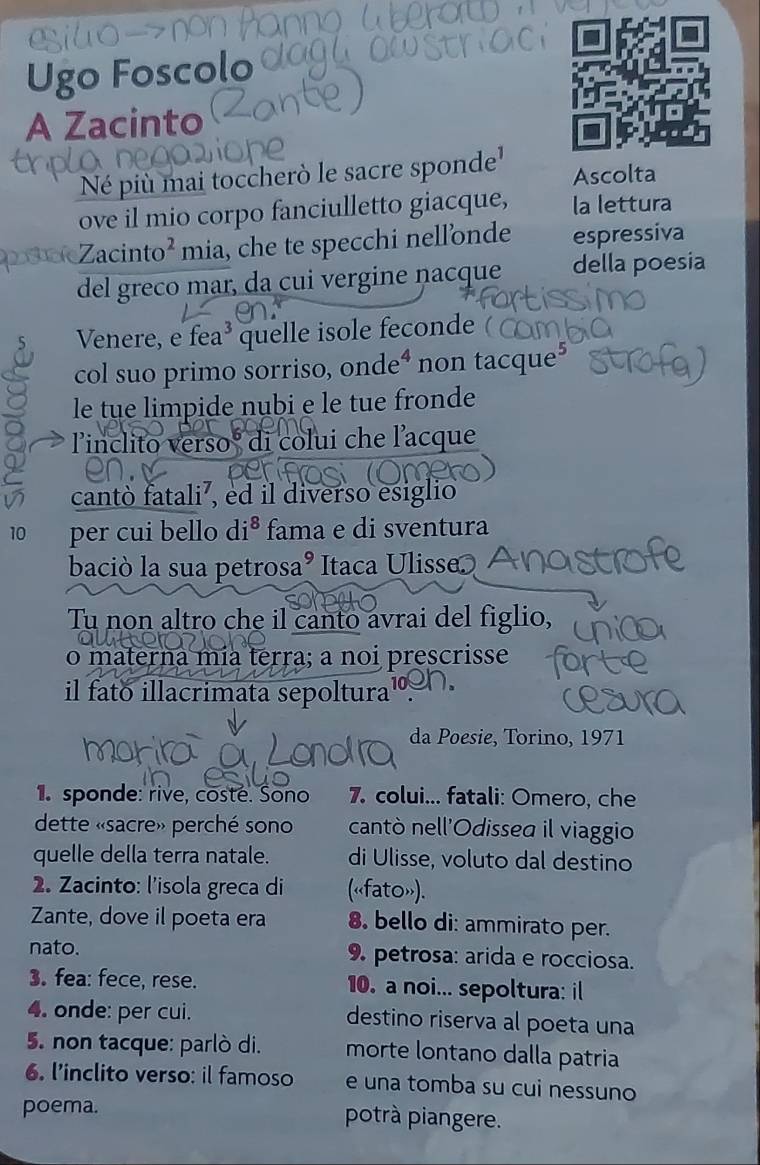 esilio -> non hanno liberato il
dagli austriaci
Ugo Foscolo
(Zante)
A Zacinto
tripla negazione
Né più mai toccherò le sacre sponde¹
ove il mio corpo fanciulletto giacque,
Zacinto² mia, che te specchi nell'onde
del greco mar, da cui vergine nacque
Ascolta
la lettura
espressiva
della poesia
en.
*fortissimo
5 Venere, e fea³ quelle isole feconde
(cambia
col suo primo sorriso, onde⁴ non tacque⁵
strofa)
le tue limpide nubi e le tue fronde
verso per poema
l'inclito verso⁶ di colui che l'acque
sineddoche
en.
perifrasi (Omero)
cantò fatali⁷, ed il diverso esiglio
10 per cui bello di⁸ fama e di sventura
baciò la sua petrosa⁹ Itaca Ulisse.
Anastrofe
sonetto
Tu non altro che il canto avrai del figlio,
unica
allitterazione
o materna mia terra; a noi prescrisse
forte
il fato illacrimata sepoltura¹⁰.
en.
cesura
da Poesie, Torino, 1971
morirà a Londra
in esilio
1. sponde: rive, coste. Sono
dette «sacre» perché sono
quelle della terra natale.
2. Zacinto: l'isola greca di
Zante, dove il poeta era
nato.
3. fea: fece, rese.
4. onde: per cui.
5. non tacque: parlò di.
6. l'inclito verso: il famoso
poema.
7. colui... fatali: Omero, che
cantò nell'Odissea il viaggio
di Ulisse, voluto dal destino
(«fato»).
8. bello di: ammirato per.
9. petrosa: arida e rocciosa.
10. a noi... sepoltura: il
destino riserva al poeta una
morte lontano dalla patria
e una tomba su cui nessuno
potrà piangere.